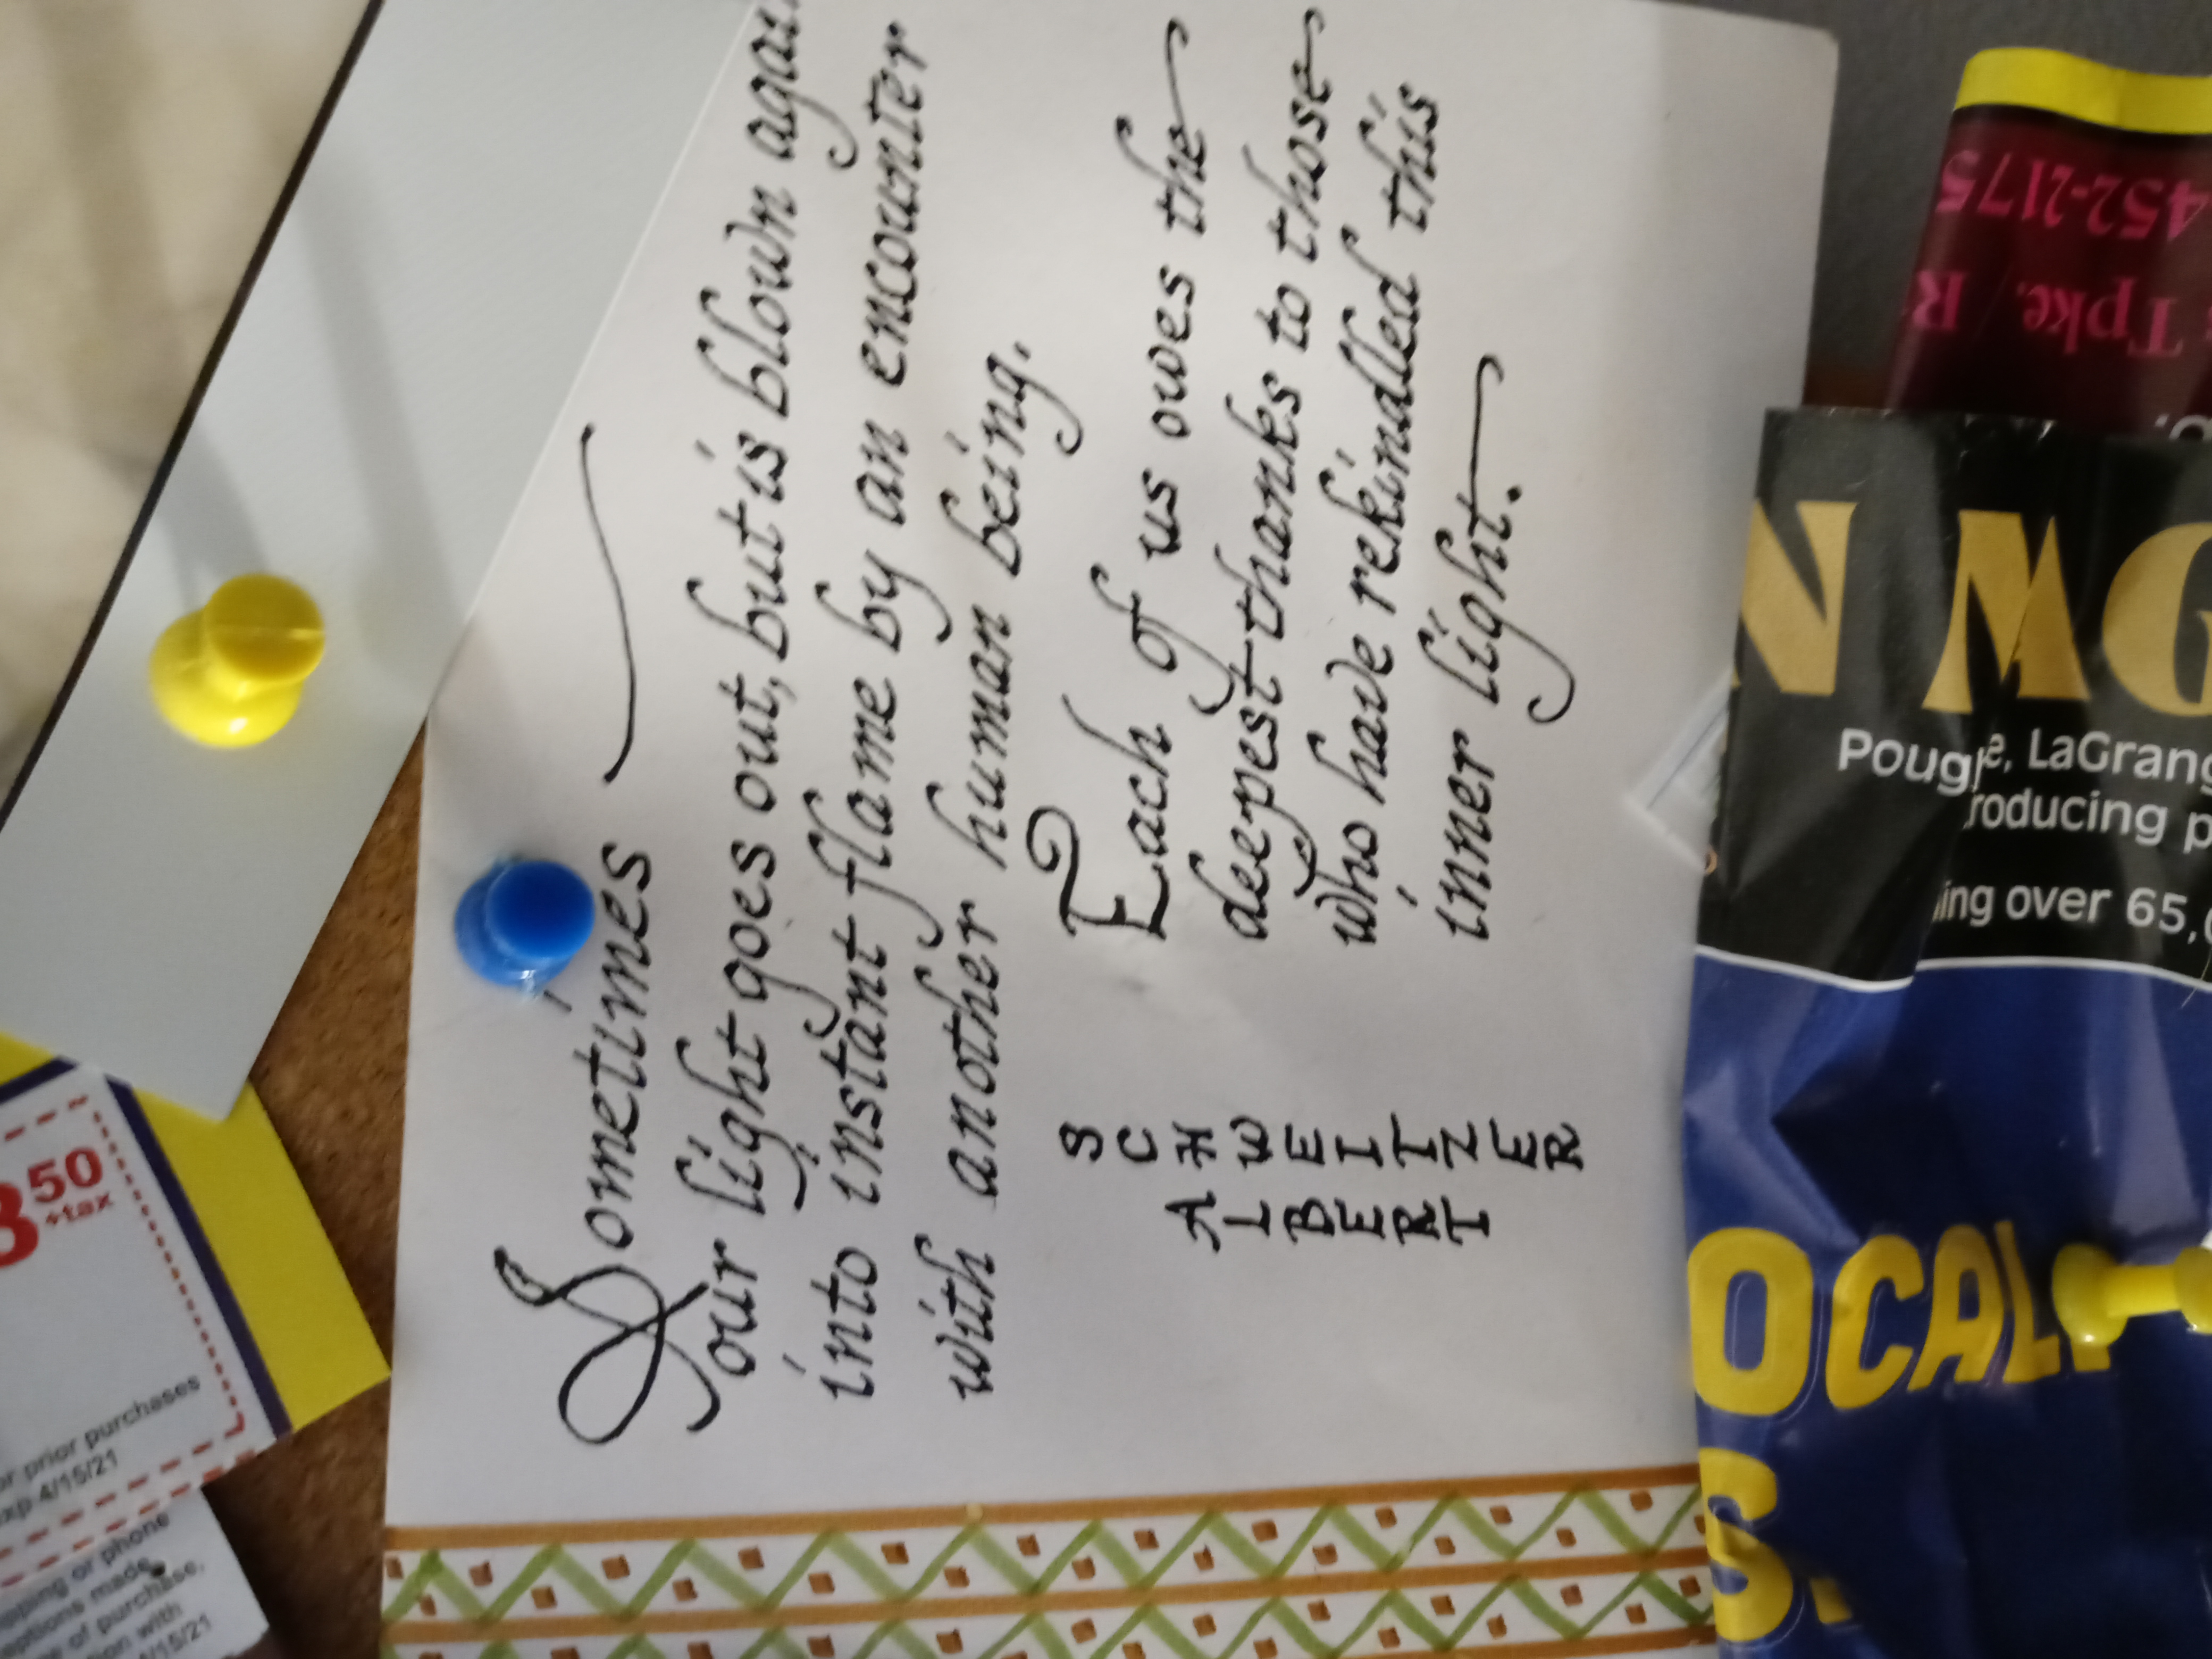 8 50
+tax
or prior purchases
exp 4/15/21
or phone
made
of purchase,
with
/15/21
Sometimes
our light goes out, but is blown agai
into instant flame by an encounter
with another human being.
Each of us owes the
deepest thanks to those
who have rekindled this
inner light.
ALBERT
SCHWEITZER
OCAL
N MG
LaGrang
roducing p
ing over 65,
Tpke. / R
452-2175